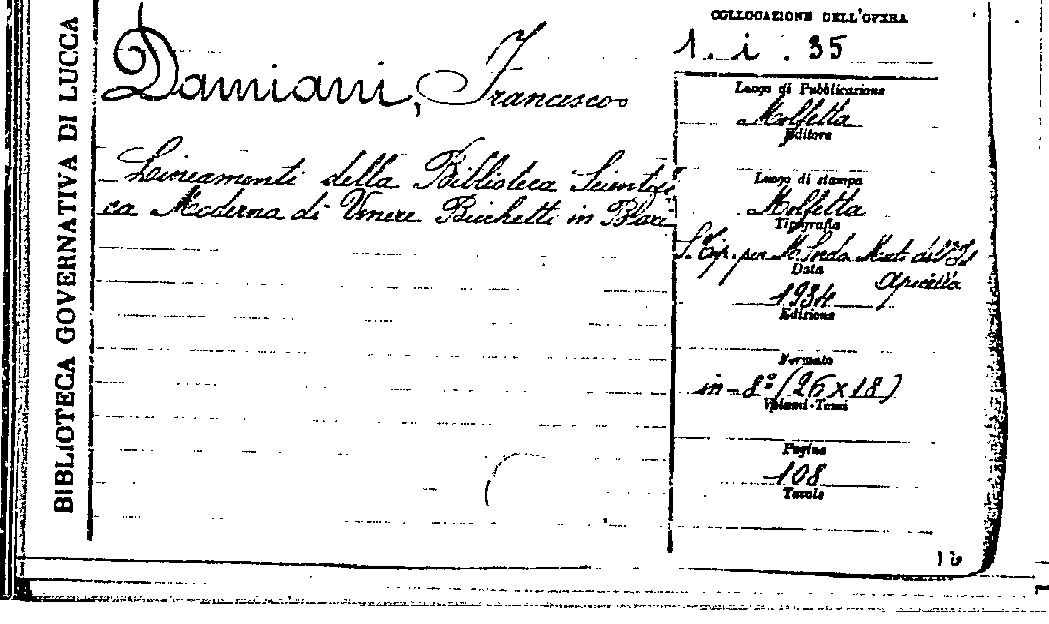 BIBLIOTECA GOVERNATIVA DI LUCCA
COLLOCAZIONE DELL'OPERA
1. i. 35
Damiani, Francesco
Lineamenti della Biblioteca Scientifi
ca Moderna di Venere Bicchetti in
Luogo di Pubblicazione
Molfetta
Editore
Luogo di stampa
Molfetta
Tipografia
S. Tip. per
Data
Apicella
1934
Edizione
Formato
in-8° (26x18)
Volumi-Tomi
Pagine
108
Tavole
16